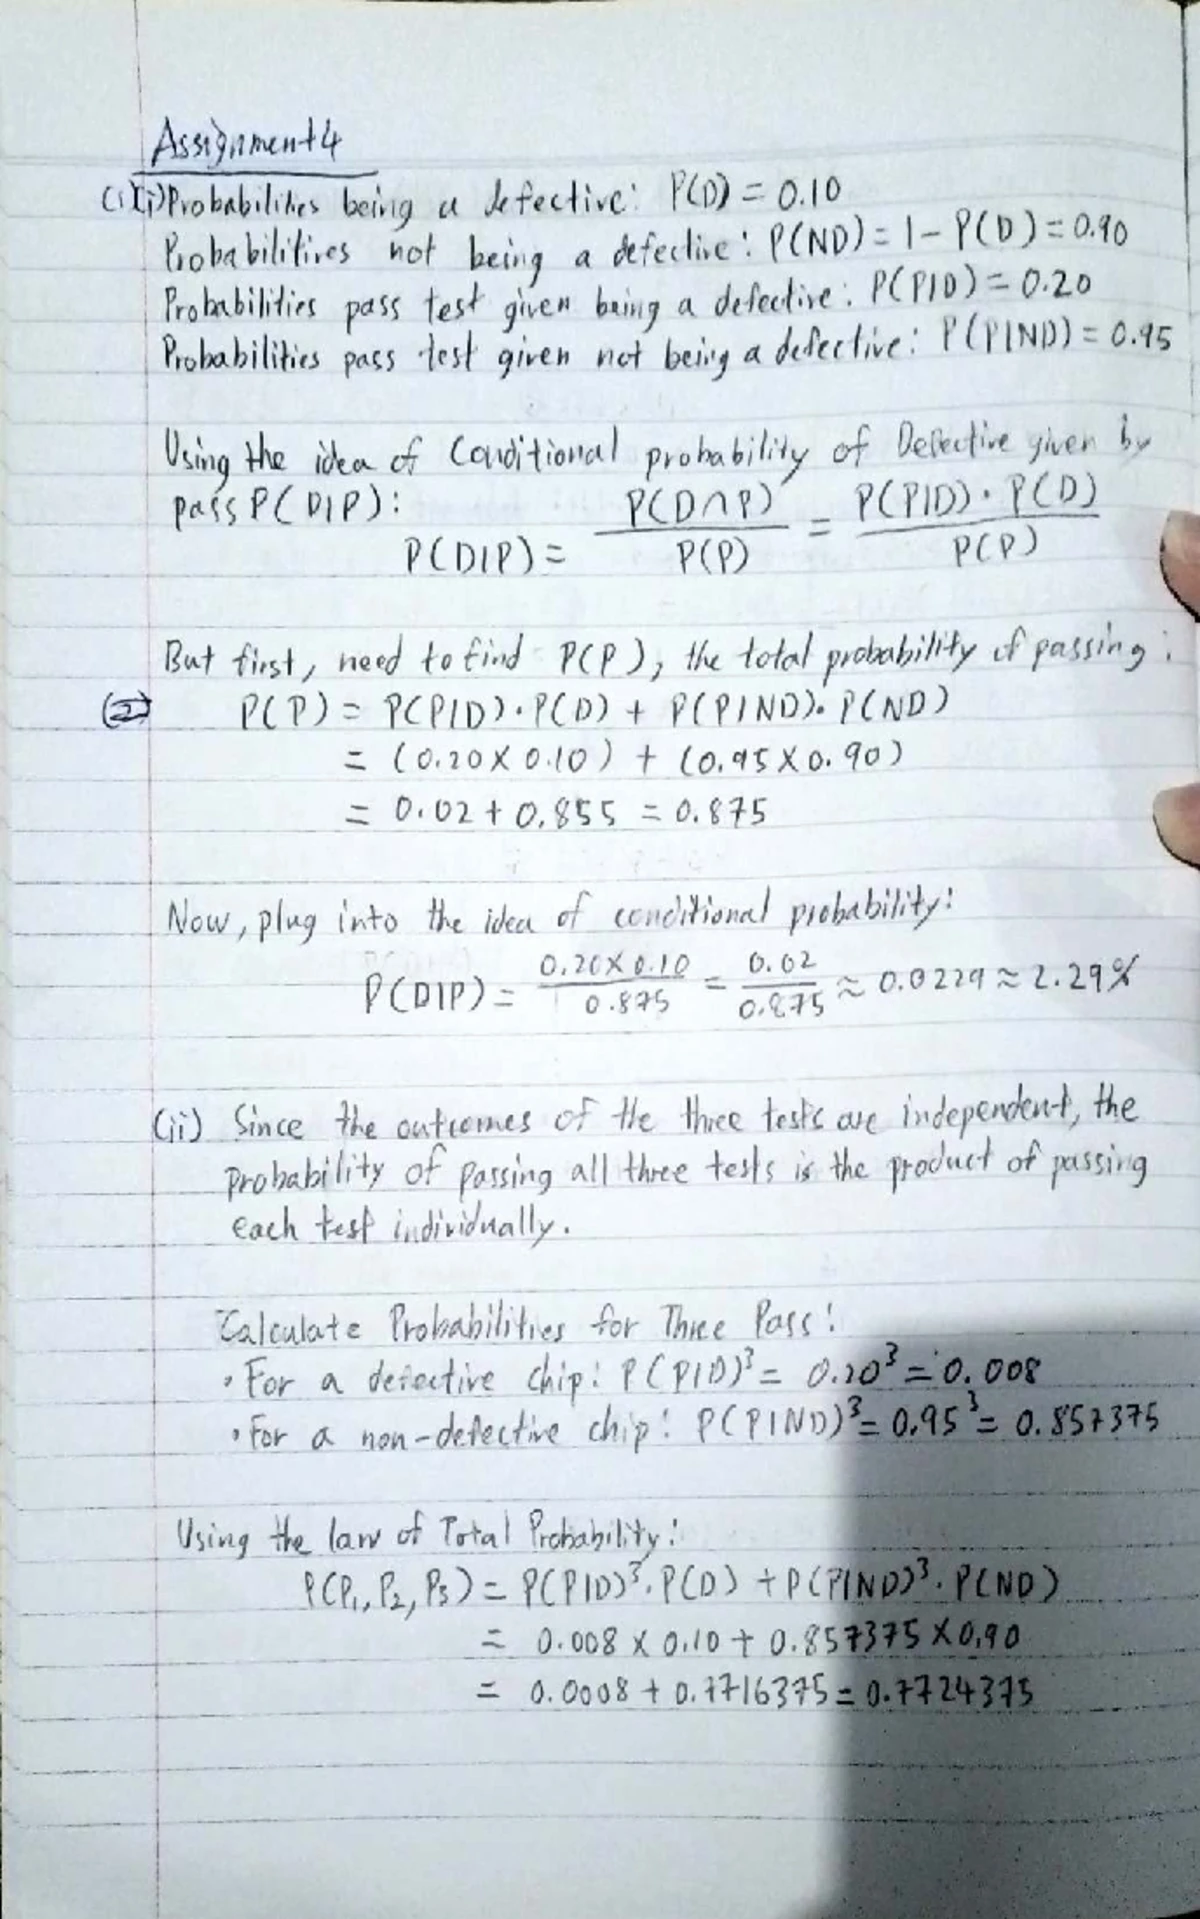 Assignment 4
(1)(i) Probabilities being a defective: P(D) = 0.10
Probabilitires not being a defective: P(ND) = 1 - P(D) = 0.90
Probabilities pass test given being a defective: P(P|D) = 0.20
Probabilities pass test given not being a defective: P(P|ND) = 0.95
Using the idea of Conditional probability of Defective given by
pass P(D|P):
P(D|P) = P(D∩P) / P(P) = P(P|D) · P(D) / P(P)
But first, need to find P(P), the total probability of passing:
(2) P(P) = P(P|D) · P(D) + P(P|ND) · P(ND)
= (0.20 X 0.10) + (0.95 X 0.90)
= 0.02 + 0.855 = 0.875
Now, plug into the idea of conditional probability:
P(D|P) = 0.20 X 0.10 / 0.875 = 0.02 / 0.875 ≈ 0.0229 ≈ 2.29%
(ii) Since the outcomes of the three tests are independent, the
probability of passing all three tests is the product of passing
each test individually.
Calculate Probabilities for Three Pass:
• For a defective chip: P(P|D)³ = 0.20³ = 0.008
• For a non-defective chip: P(P|ND)³ = 0.95³ = 0.857375
Using the law of Total Probability:
P(P₁, P₂, P₃) = P(P|D)³ · P(D) + P(P|ND)³ · P(ND)
= 0.008 X 0.10 + 0.857375 X 0.90
= 0.0008 + 0.7716375 = 0.7724375